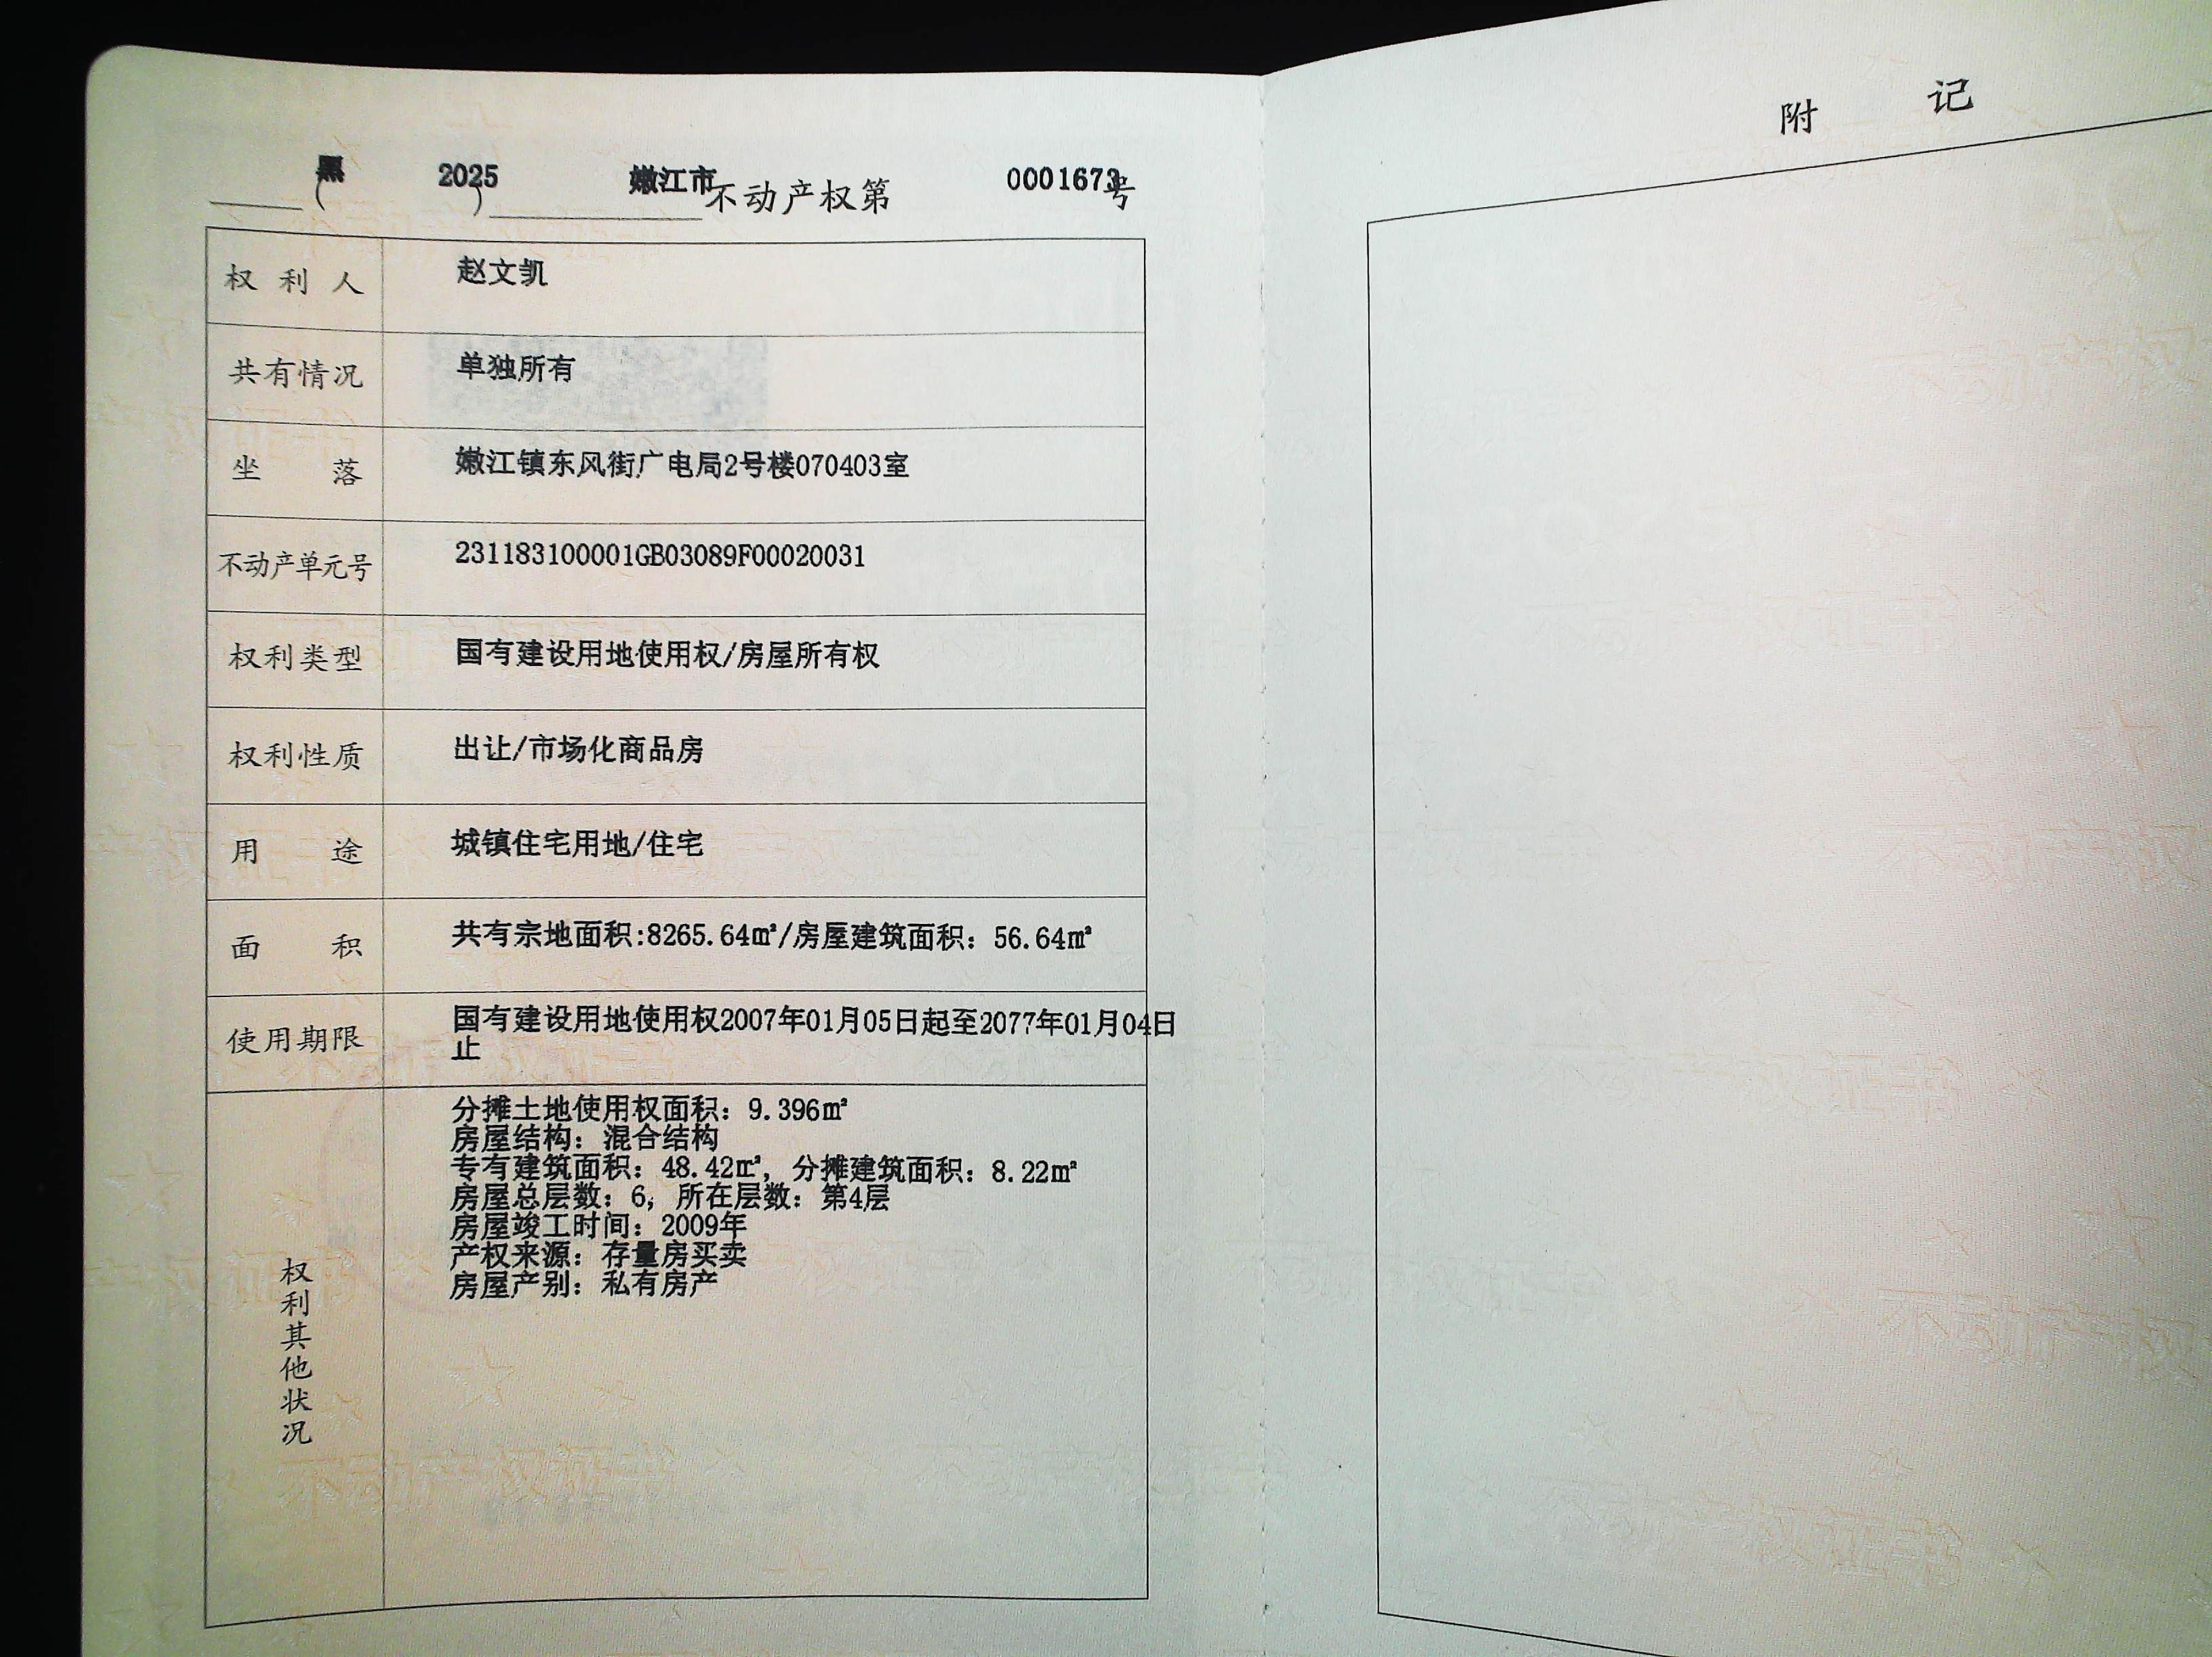 黑(2025)嫩江市不动产权第0001673号
权利人 赵文凯
共有情况 单独所有
坐落 嫩江镇东风街广电局2号楼070403室
不动产单元号 231183100001GB03089F00020031
权利类型 国有建设用地使用权/房屋所有权
权利性质 出让/市场化商品房
用途 城镇住宅用地/住宅
面积 共有宗地面积:8265.64㎡/房屋建筑面积：56.64㎡
使用期限 国有建设用地使用权2007年01月05日起至2077年01月04日
止
权利其他状况
分摊土地使用权面积：9.396㎡
房屋结构：混合结构
专有建筑面积：48.42㎡，分摊建筑面积：8.22㎡
房屋总层数：6，所在层数：第4层
房屋竣工时间：2009年
产权来源：存量房买卖
房屋产别：私有房产
附记